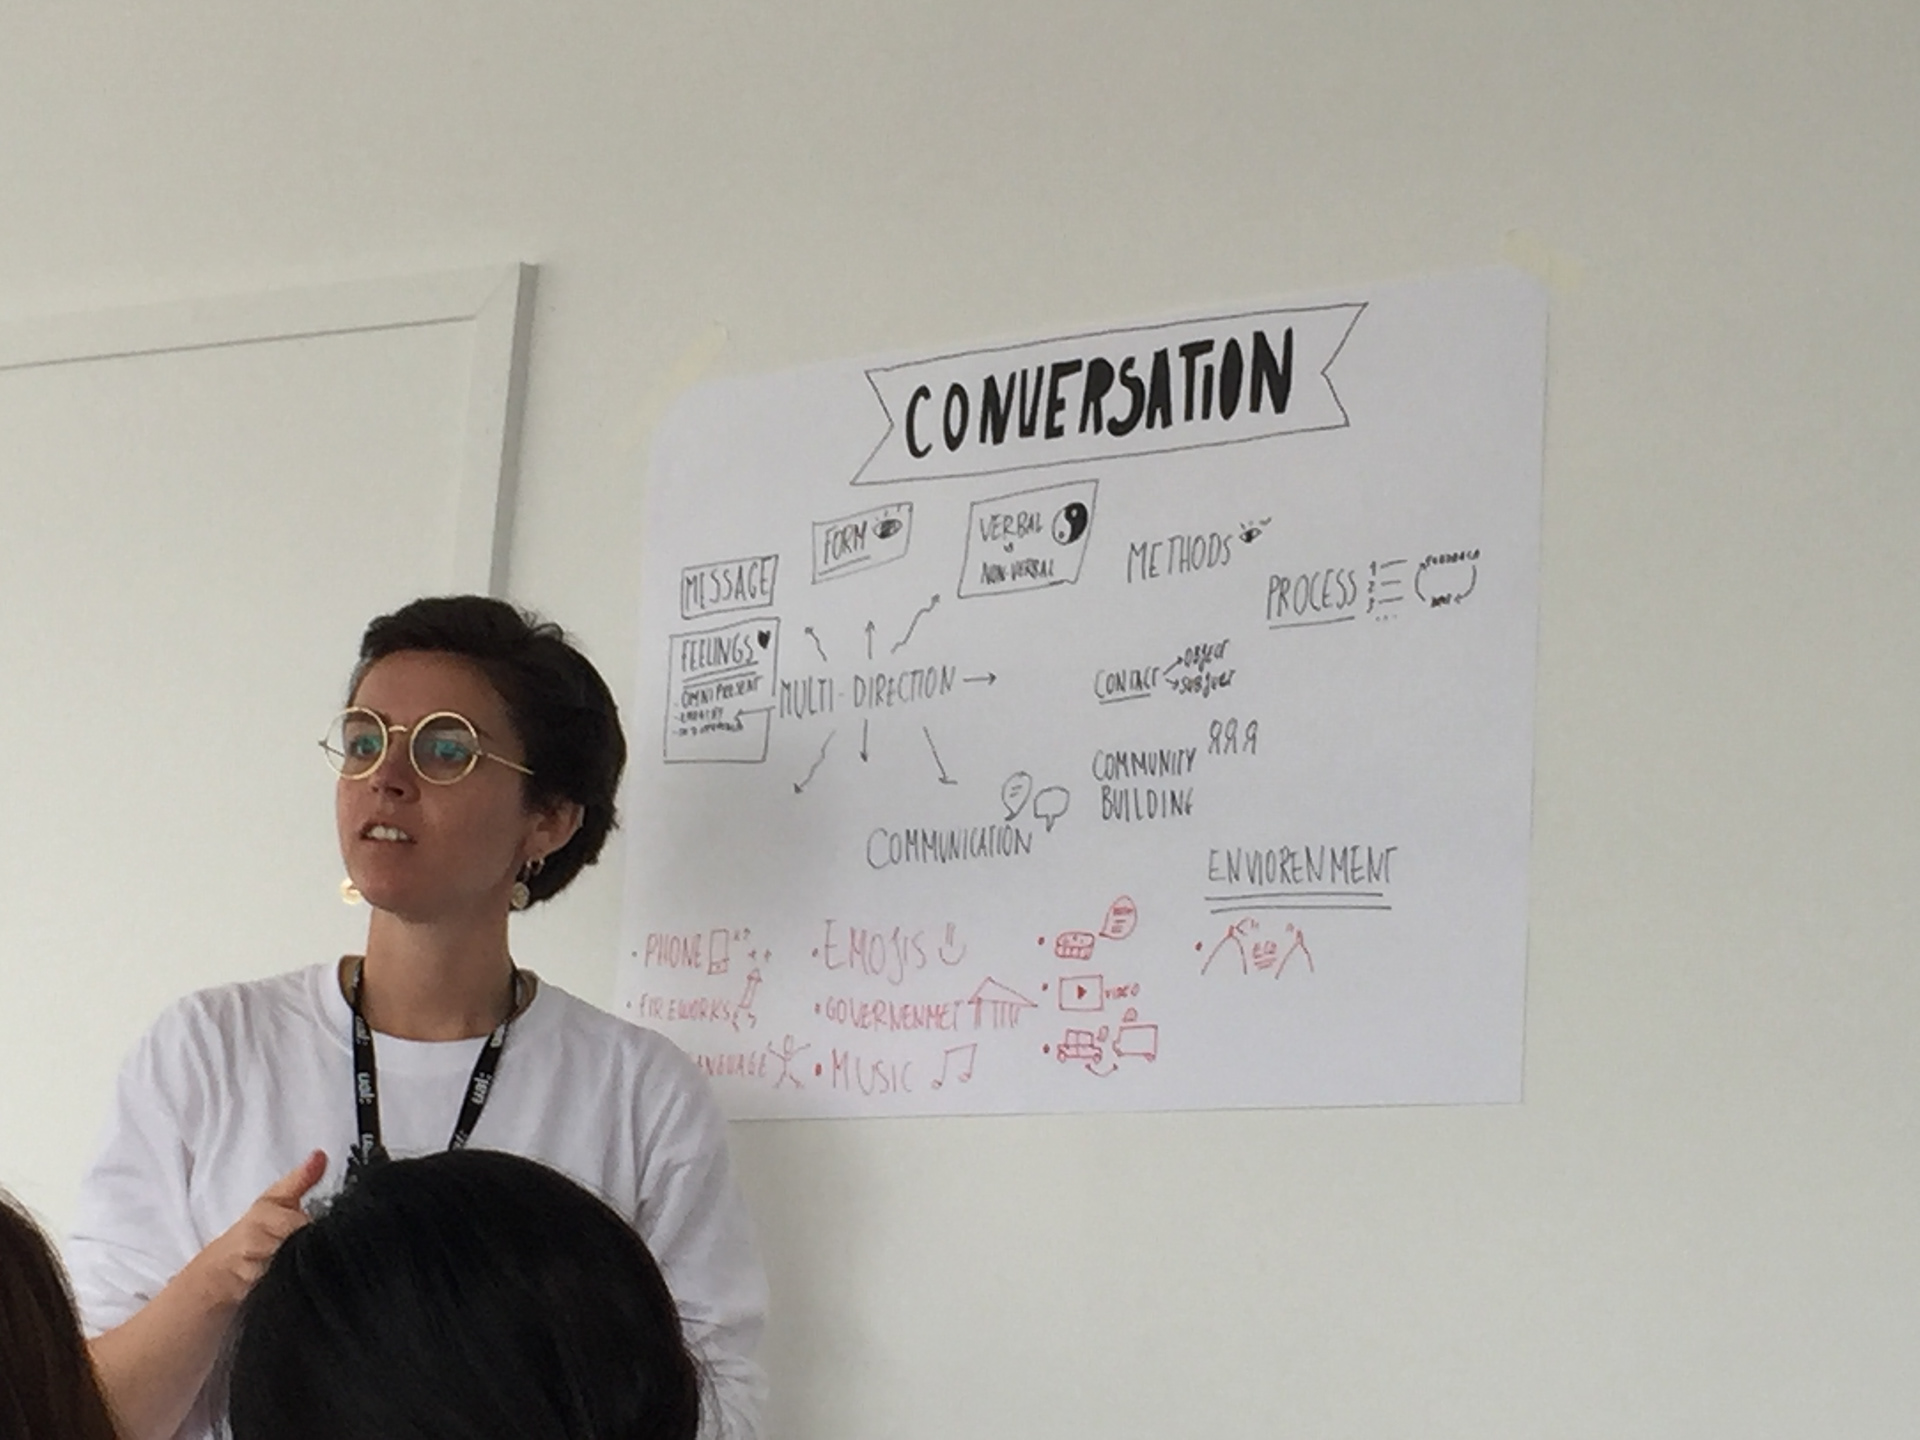 CONVERSATION
FORM
VERBAL
vs
NON-VERBAL
METHODS
MESSAGE
PROCESS
1
2
3
FEELINGS
- OMNIPRESENT
MULTI-DIRECTION
CONTACT
OBJECT
SUBJECT
COMMUNITY
BUILDING
COMMUNICATION
ENVIORENMENT
• PHONE
• EMOJIS
• FIREWORKS
• GOVERNENMET
VIDEO
ANGUAGE
• MUSIC
ual: